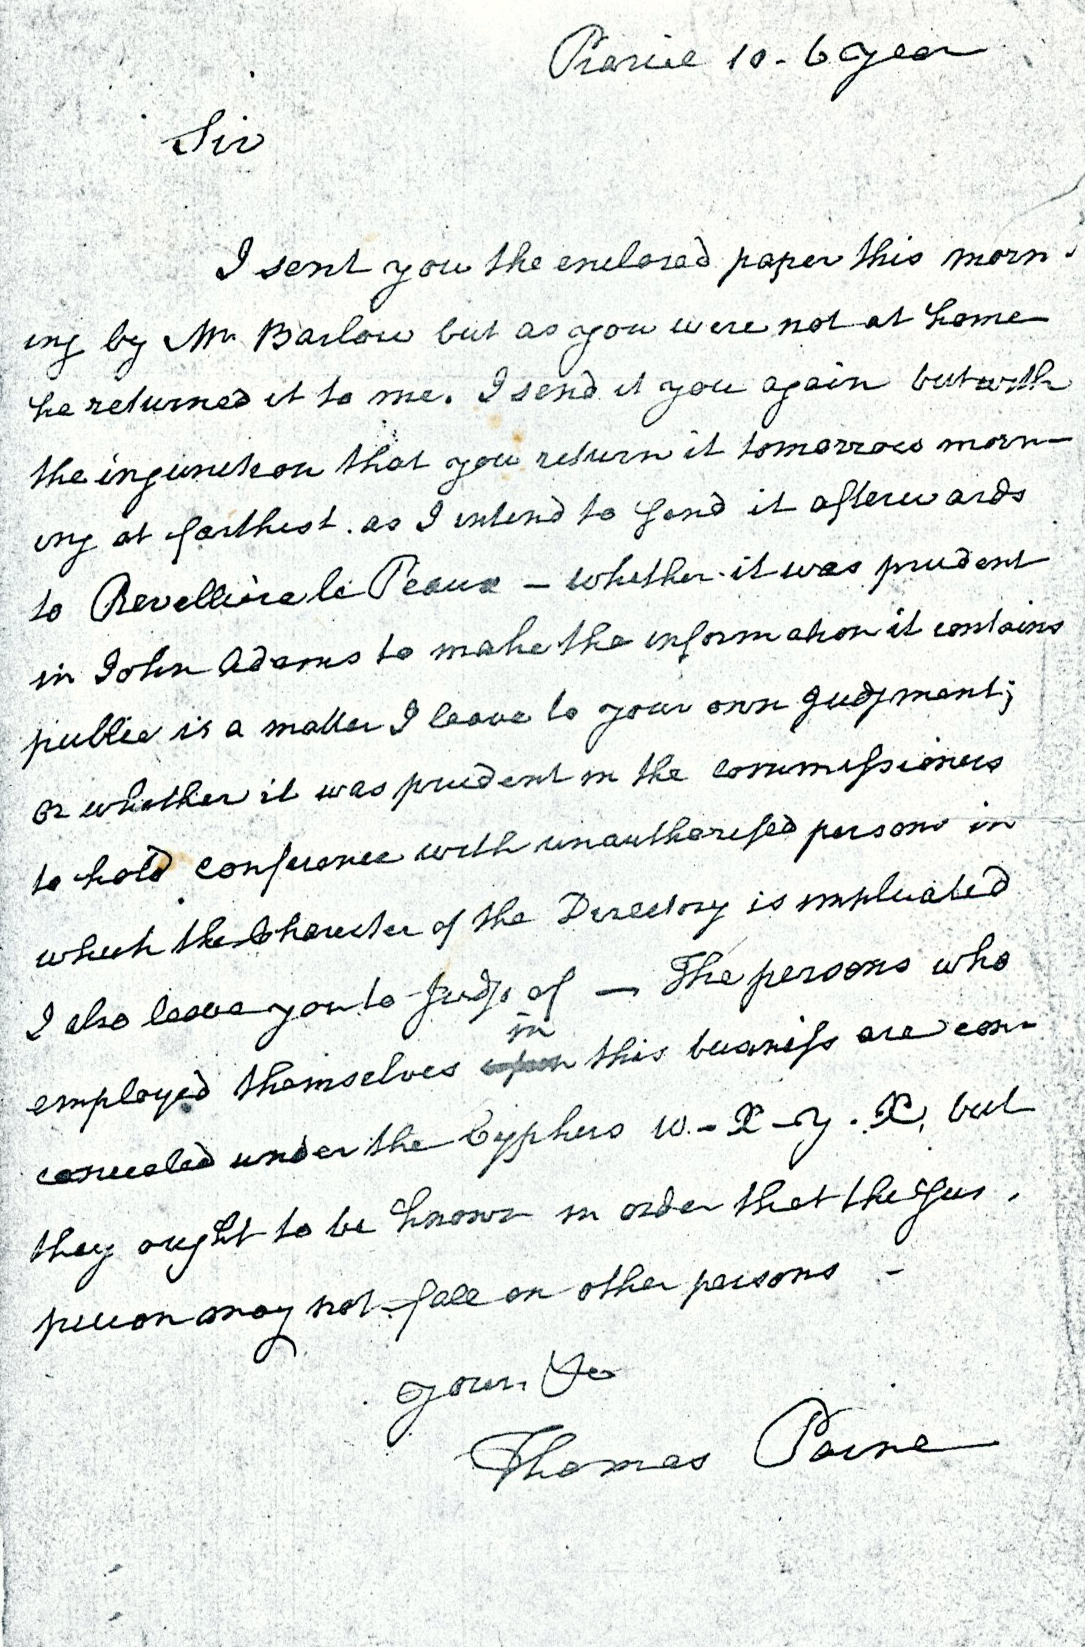 Prairial 10 - 6 year
Sir
I sent you the enclosed paper this morn-
ing by Mr Barlow but as you were not at home
he returned it to me. I send it you again but with
the injunction that you return it tomorrow morn-
ing at farthest. as I intend to send it afterwards
to Revelliere le Peaux – whether it was prudent
in John Adams to make the information it contains
public is a matter I leave to your own judgment;
or whether it was prudent in the commissioners
to hold conference with unauthorised persons in
which the Character of the Directory is implicated
I also leave you to judge of — The persons who
in
employed themselves this business are con-
concealed under the Cyphers W. – X – Y . X, but
they ought to be known in order that the sus.
picion may not fall on other persons –
your. &c
Thomas Paine